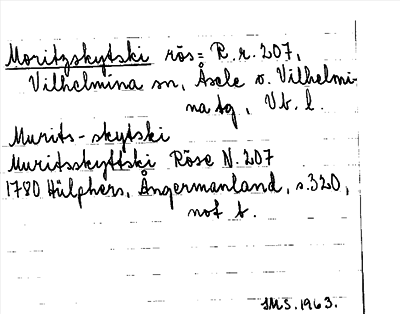 Moritzskytski rös = R. r. 207,
Vilhelmina sn, Åsele o. Vilhelmi-
na tg, Vb. l.
Murits-skytski
Muritsskyttski Röse N. 207
1780 Hülphers, Ångermanland, s. 320,
not t.
JMS. 1963.